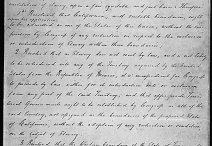 resolutions of
suitable application
1. Resolved, that California, with suitable boundaries, ought
to be admitted as one of the States of this Union, without the im-
position by Congress of any restriction in respect to the exclusion
or introduction of Slavery within those boundaries.
2. Resolved, that as Slavery does not exist by law, and is not likely
to be introduced into any of the Territory acquired by the United
States from the Republic of Mexico, it is inexpedient for Congress
to provide by law either for its introduction into or exclusion
from any part of the said Territory; and that appropriate Terri-
torial Governments ought to be established by Congress in all of the
said territory, not assigned as the boundaries of the proposed State
of California, without the adoption of any restriction or condition
on the subject of Slavery.
3. Resolved, that the Western boundary of the State of